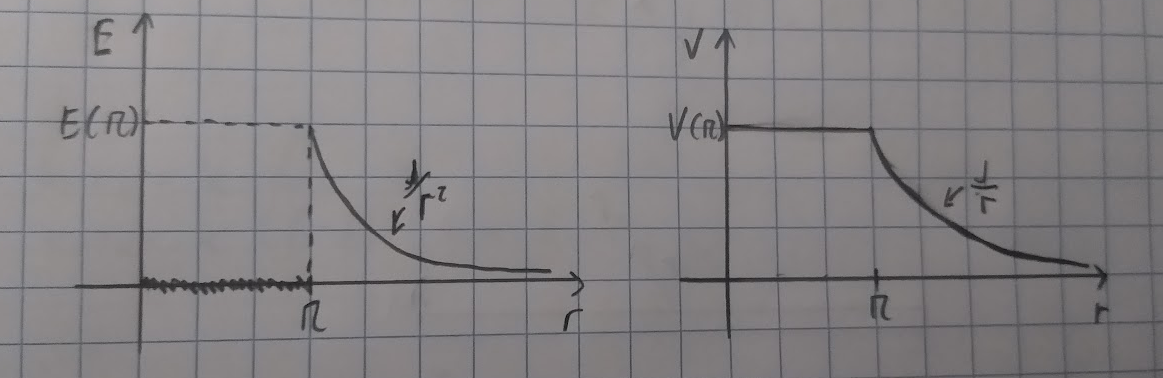 E
E(R)
1/r²
R
r
V
V(R)
1/r
R
r